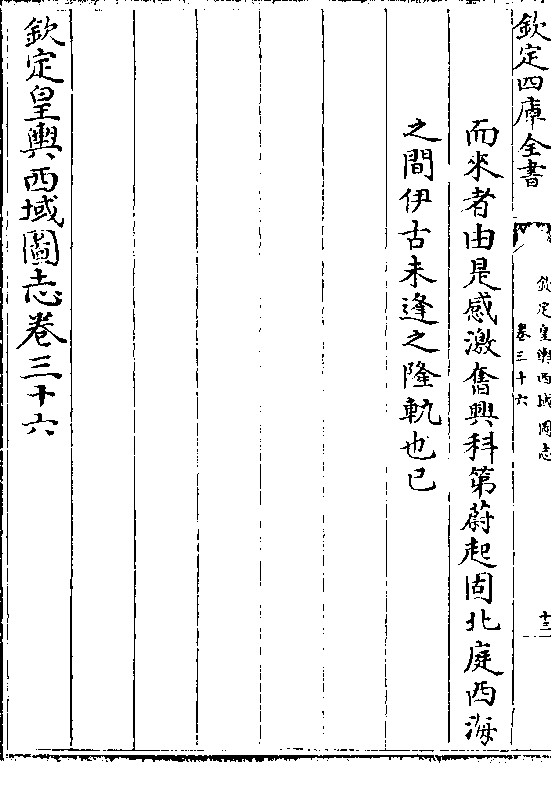 欽定四庫全書
欽定皇輿西域圖志
卷三十六
十三
而來者由是感激奮興科第蔚起固北庭西海
之間伊古未逢之隆軌也已
欽定皇輿西域圖志卷三十六